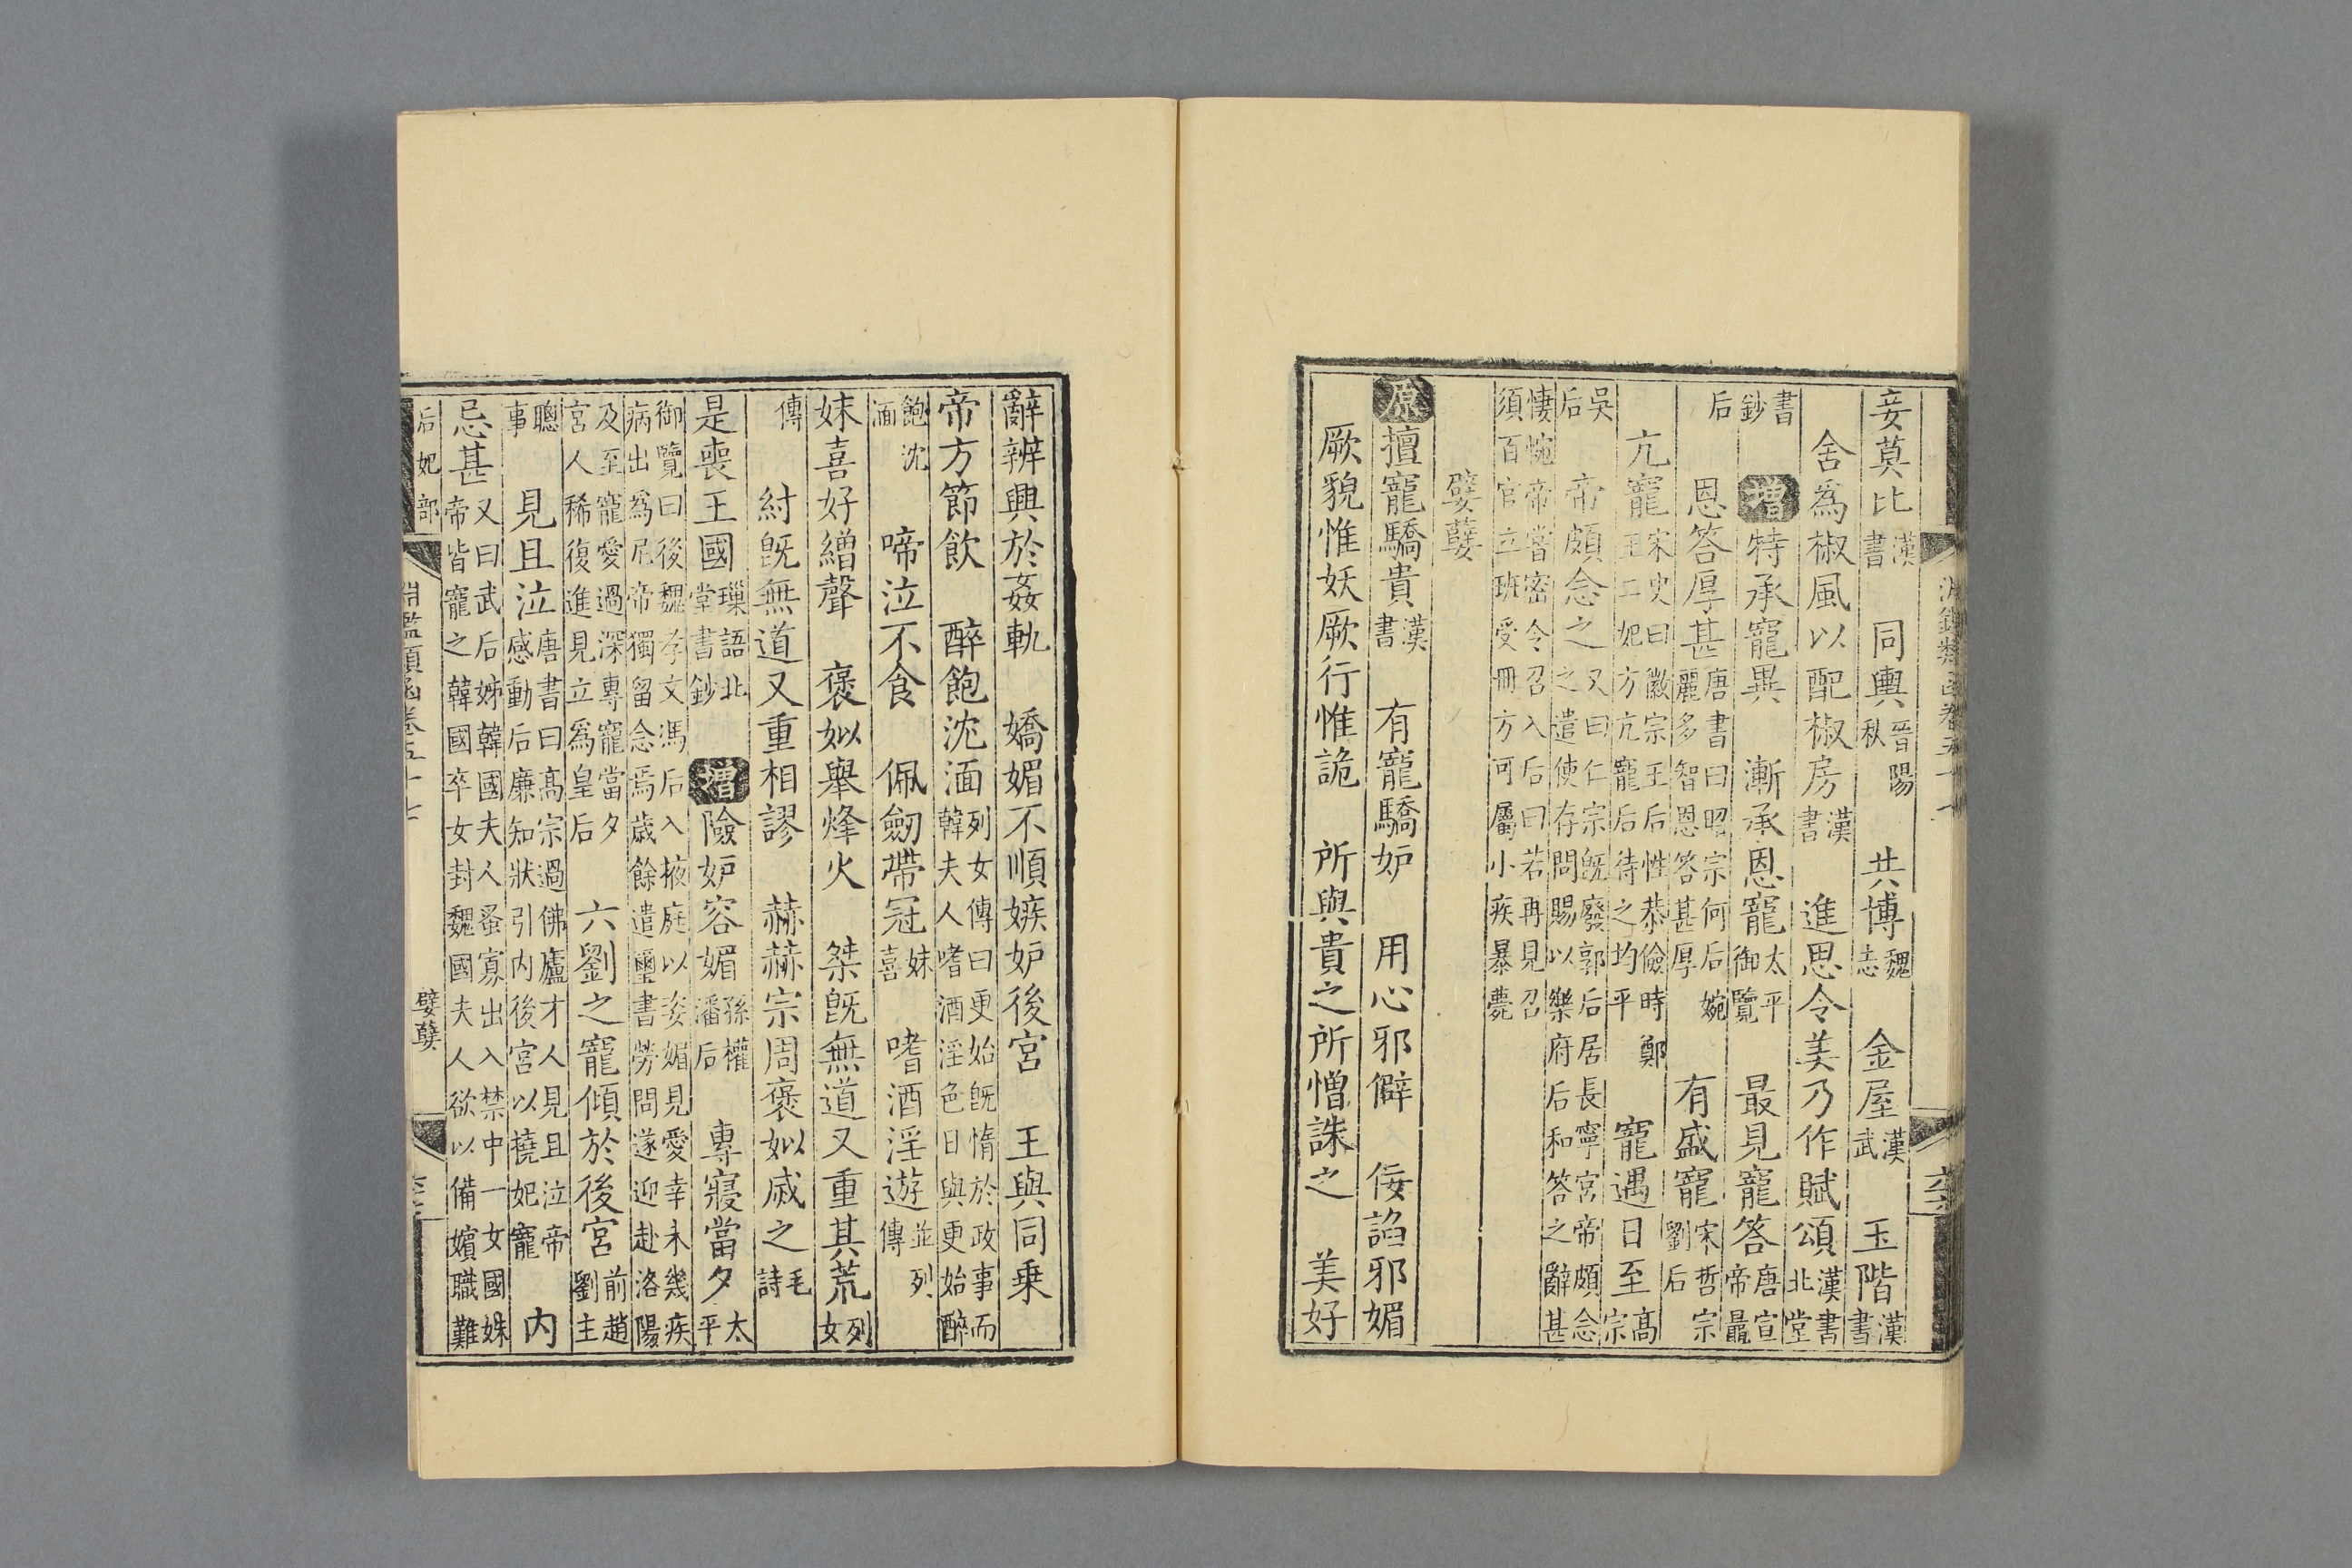 妾莫比漢書 同輿晉陽秋 共博魏志 金屋漢武 玉階漢書
舍爲椒風以配椒房漢書 進思令美乃作賦頌漢書北堂
書鈔 增特承寵異 漸承恩寵太平御覽 最見寵答唐宣帝鼂
后 恩答厚甚唐書曰昭宗何后婉麗多智恩答甚厚 有盛寵宋哲宗劉后
亢寵宋史曰徽宗王后性恭儉時鄭王二妃方亢寵后待之均平 寵遇日至高宗
吳后 帝頗念之又曰仁宗旣廢郭后居長寧宮帝頗念之遣使存問賜以樂府后和答之辭甚
悽惋帝嘗密令召入后曰若再見召須百官立班受冊方可屬小疾暴薨
嬖孽
原擅寵驕貴漢書 有寵驕妒 用心邪僻 佞諂邪媚
厥貌惟妖厥行惟詭 所與貴之所憎誅之 美好
辭辨興於姦軌 嬌媚不順嫉妒後宮 王與同乗
帝方節飲 醉飽沈湎列女傳曰更始旣惰於政事而韓夫人嗜酒淫色日與更始醉
飽沈湎 啼泣不食 佩劒帶冠妹喜 嗜酒淫遊並列傳
妺喜好繒聲 褒姒舉烽火 桀旣無道又重其荒列女
傳 紂旣無道又重相謬 赫赫宗周褒姒烕之毛詩
是喪王國璅語北堂書鈔 增險妒容媚孫權潘后 專寢當夕太平
御覽曰後魏孝文馮后入掖庭以姿媚見愛幸未幾疾病出爲尼帝獨留念焉歳餘遣璽書勞問遂迎赴洛陽
及至寵愛過深專寵當夕宮人稀復進見立爲皇后 六劉之寵傾於後宮前趙劉主
聰事 見且泣唐書曰高宗過佛廬才人見且泣帝感動后廉知狀引内後宮以撓妃寵 内
忌甚又曰武后姊韓國夫人蚤寡出入禁中一女國姝帝皆寵之韓國卒女封魏國夫人欲以備嬪職難
后妃部 淵鑑類函卷五十七 嬖孽